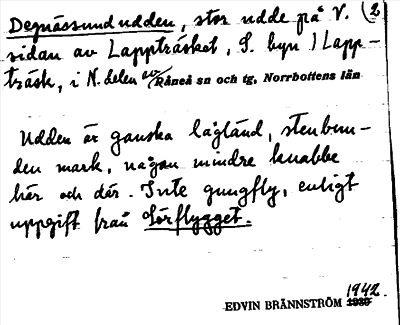 Degnässundudden, stor udde på V. (2
sidan av Lappträsket, S. byn) Lapp-
träsk, i N. delen av Råneå sn och tg, Norrbottens län
Udden är ganska lågländ, stenbun-
den mark, någon mindre knabbe
här och där. Inte gungfly, enligt
uppgift från Sörflygget.
1942.
EDVIN BRÄNNSTRÖM 1939